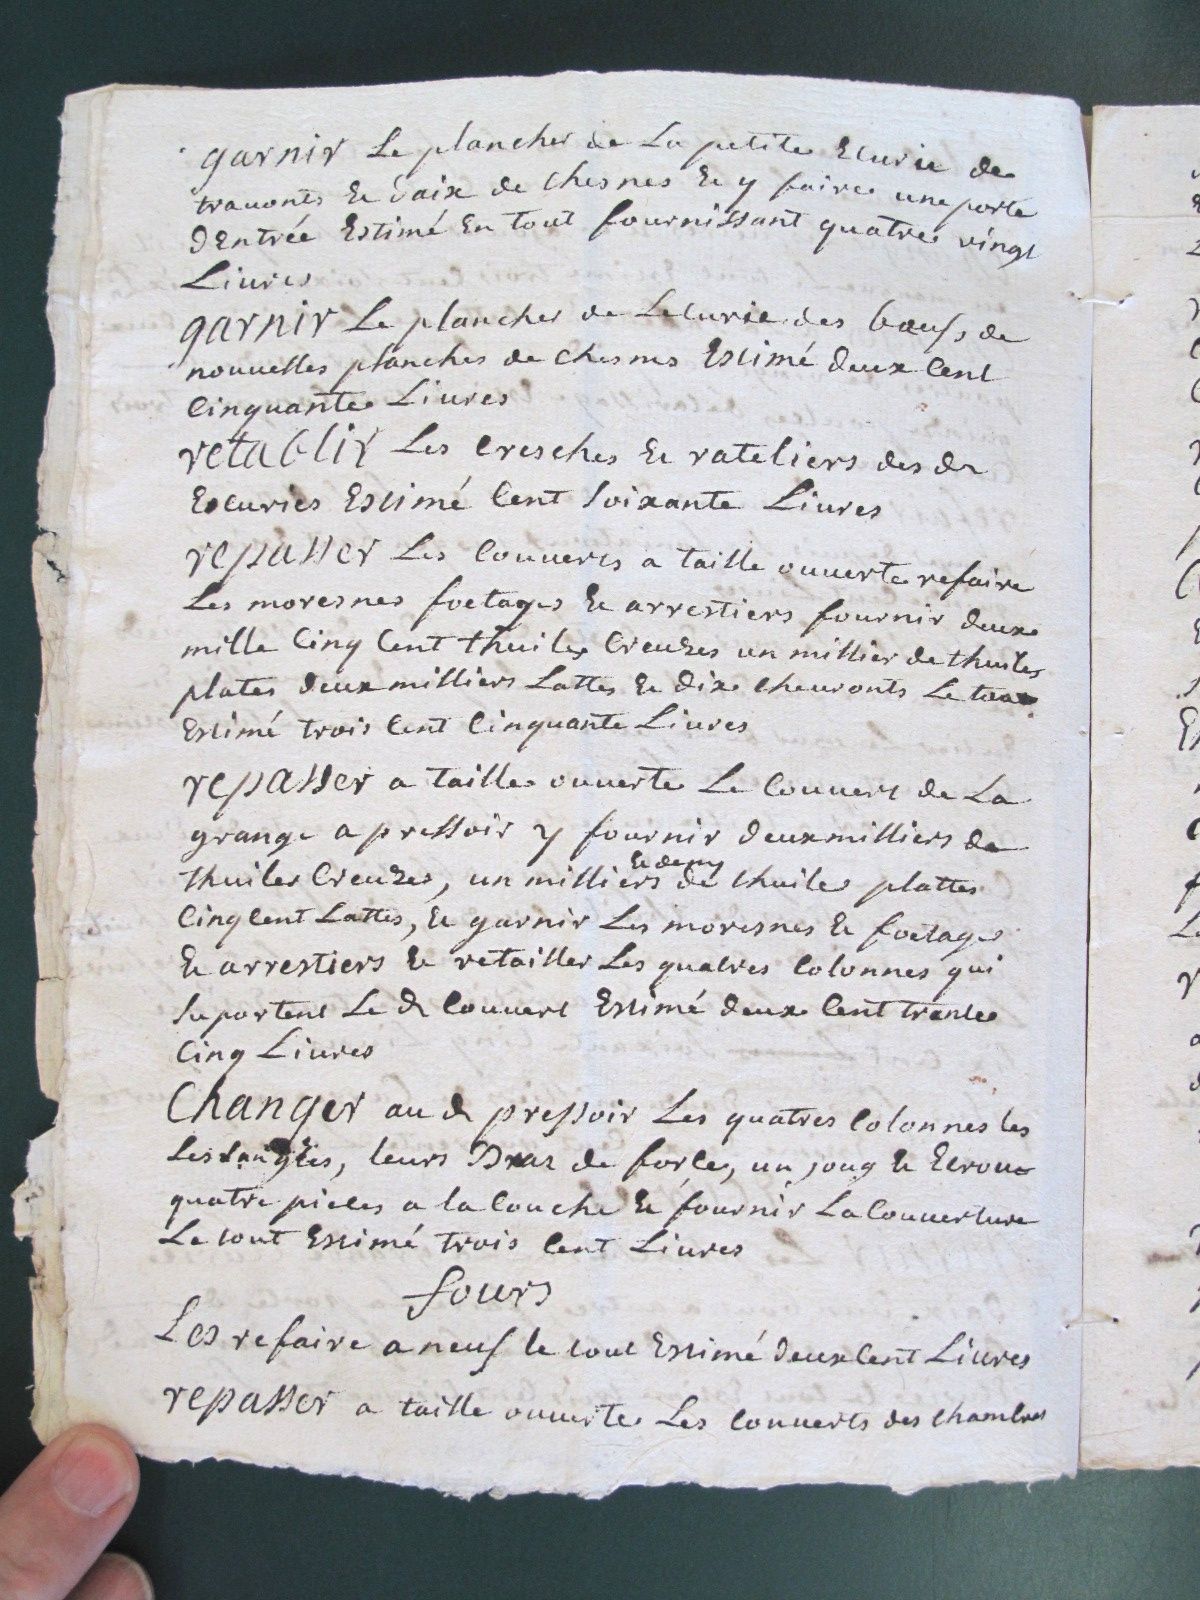 garnir Le plancher de La petite Ecurie de
trauonts & daix de chesnes & y faire une porte
dEntrée Estimé En tout fournissant quatre vingt
Liures
garnir Le plancher de Lecurie des bœufs de
nouuelles planches de chesnes Estimé deux Cent
Cinquante Liures
retablir Les Cresches & rateliers des dt
Escuries Estimé Cent Soixante Liures
repasser Les Couuerts a taille ouuerte refaire
Les moresnes foetages & arrestiers fournir deux
mille Cinq Cent thuiles Creuzes un millier de thuiles
plates deux milliers Lattes & dix cheuronts Le tout
Estimé trois Cent Cinquante Liures
repasser a taille ouuerte Le Couuert de La
grange a pressoir y fournir deux milliers de
& demy
thuiles Creuzes, un milliers de thuiles plattes
Cinq Cent Lattes, & garnir Les moresnes & foetages
& arrestiers & retailler Les quatres Colonnes qui
Suportent Le dt Couuert Estimé deux Cent trente
Cinq Liures
Changer au dt pressoir Les quatres Colonnes les
leurs Bras de force, un joug & Ecroux
quatre pieces a la Couche & fournir La Couuerture
Le tout Estimé trois Cent Liures
fours
Les refaire a neuf le tout Estimé deux Cent Liures
repasser a taille ouuerte Les Couuerts des chambres